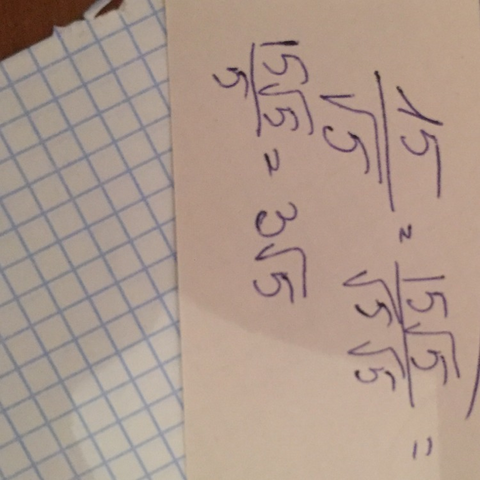 15/√5 = 15√5/√5√5 =
15√5/5 = 3√5